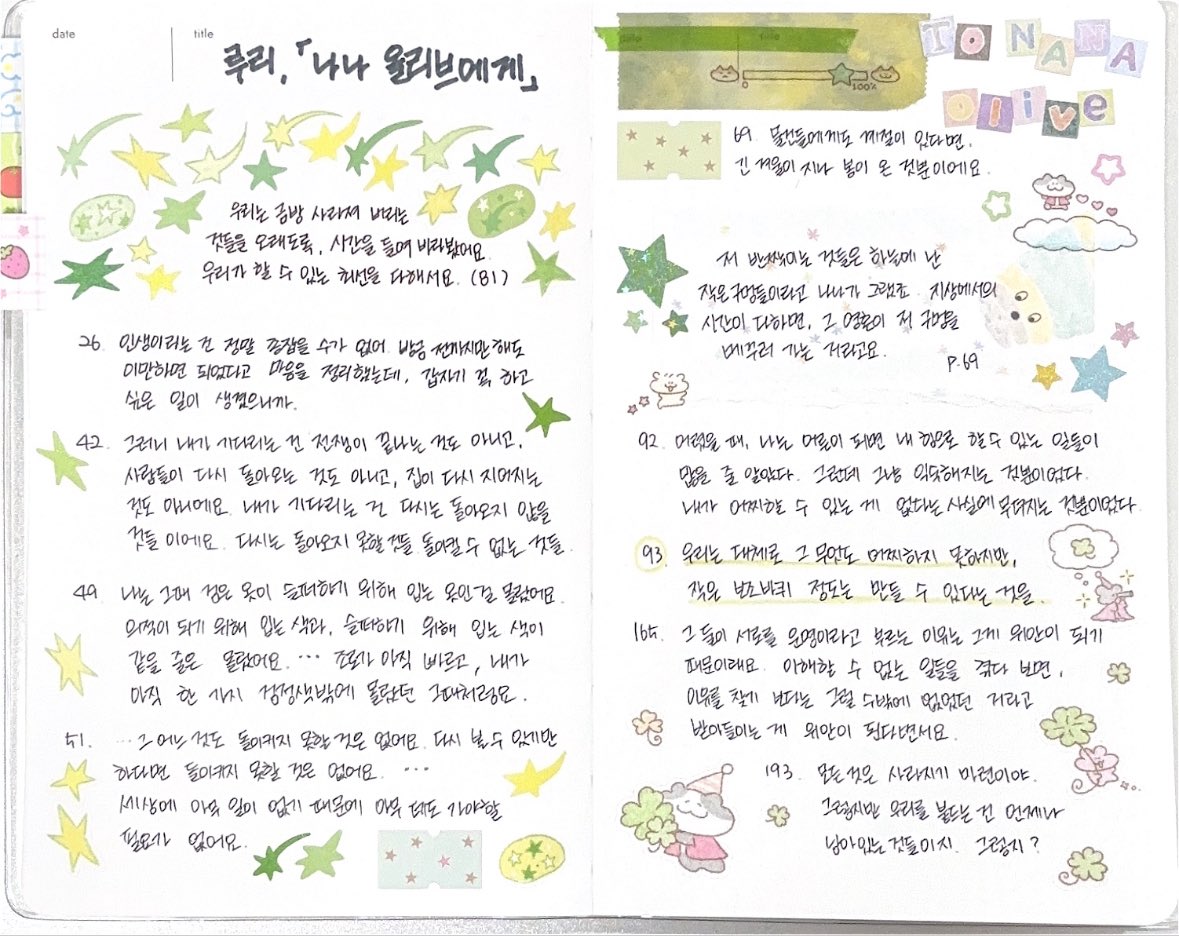 date
title
루리, 「나나 올리브에게」
우리는 금방 사라져 버리는
것들을 오래도록, 시간을 들여 바라봤어요.
우리가 할 수 있는 최선을 다해서요. (81)
26. 인생이라는 건 정말 종잡을 수가 없어. 방금 전까지만 해도
이만하면 되었다고 마음을 정리했는데, 갑자기 꼭 하고
싶은 일이 생겼으니까.
42. 그러니 내가 기다리는 건 전쟁이 끝나는 것도 아니고,
사람들이 다시 돌아오는 것도 아니고, 집이 다시 지어지는
것도 아니에요. 내가 기다리는 건 다시는 돌아오지 않을
것들이에요. 다시는 돌아오지 못할 것들 돌이킬 수 없는 것들.
49. 나는 그때 검은 옷이 슬퍼하기 위해 입는 옷인 걸 몰랐어요.
의적이 되기 위해 입는 색과, 슬퍼하기 위해 입는 색이
같을 줄은 몰랐어요. … 초로가 아직 빠르고, 내가
아직 한 가지 검정색밖에 몰랐던 그때처럼요.
51. … 그 어느 것도 돌이키지 못할 것은 없어요. 다시 볼 수 있게만
하다면 돌이키지 못할 것은 없어요. …
세상에 아무 일이 없기 때문에 아무 데도 가야할
필요가 없어요.
title
0
100%
TO NANA
Olive
69. 물건들에게도 계절이 있다면,
긴 겨울이 지나 봄이 온 것뿐이에요.
저 반짝이는 것들은 하늘에 난
작은 구멍들이라고 나나가 그랬죠. 지상에서의
시간이 다하면, 그 영혼이 저 구멍을
메꾸러 가는 거라고요.
p.69
92. 어렸을 때, 나는 어른이 되면 내 힘으로 할 수 있는 일들이
많을 줄 알았다. 그런데 그냥 익숙해지는 것뿐이었다.
내가 어찌할 수 있는 게 없다는 사실에 무뎌지는 것뿐이었다.
93. 우리는 대체로 그 무엇도 어찌하지 못하지만,
작은 보조바퀴 정도는 만들 수 있다는 것을.
165. 그들이 서로를 운명이라고 부르는 이유는 그게 위안이 되기
때문이래요. 이해할 수 없는 일들을 겪다 보면,
이유를 찾기 보다는 그럴 수밖에 없었던 거라고
받아들이는 게 위안이 된다면서요.
193. 모든 것은 사라지기 마련이야.
그렇지만 우리를 붙드는 건 언제나
남아있는 것들이지. 그렇지?